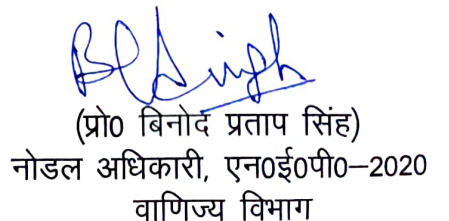 BPSingh
(प्रो0 बिनोद प्रताप सिंह)
नोडल अधिकारी, एन0ई0पी0–2020
वाणिज्य विभाग